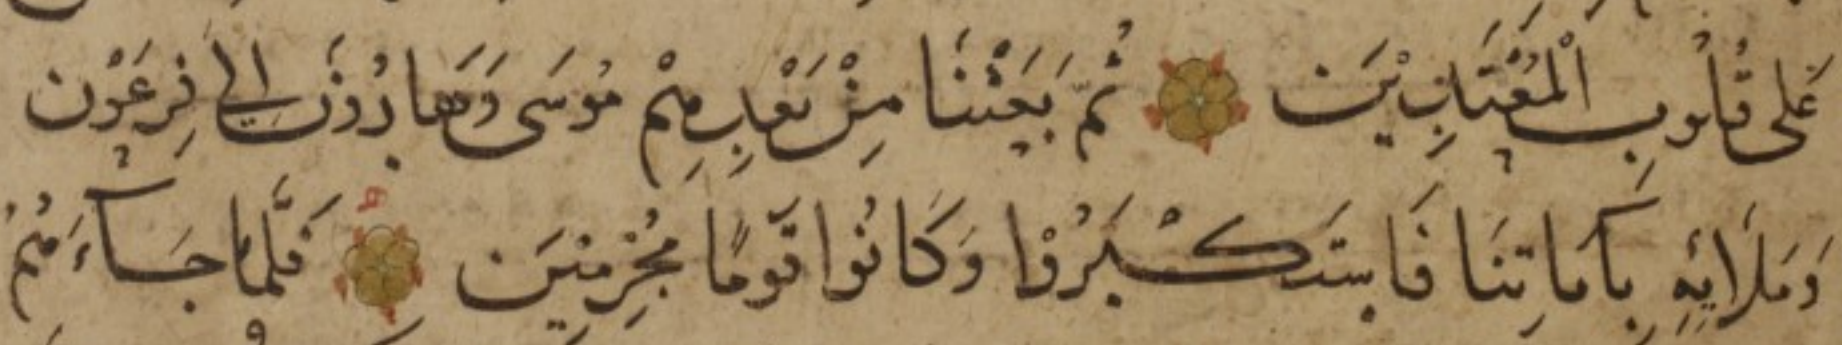 عَلَى قُلُوبِ الْمُعْتَدِيْنَ ثُمَّ بَعَثْنَا مِنْ بَعْدِهِمْ مُوسَى وَهَارُونَ إِلَى فِرْعَوْنَ
وَمَلَائِهِ بِآيَاتِنَا فَاسْتَكْبَرُوْا وَكَانُوا قَوْمًا مُجْرِمِيْنَ فَلَمَّا جَآءَهُمُ